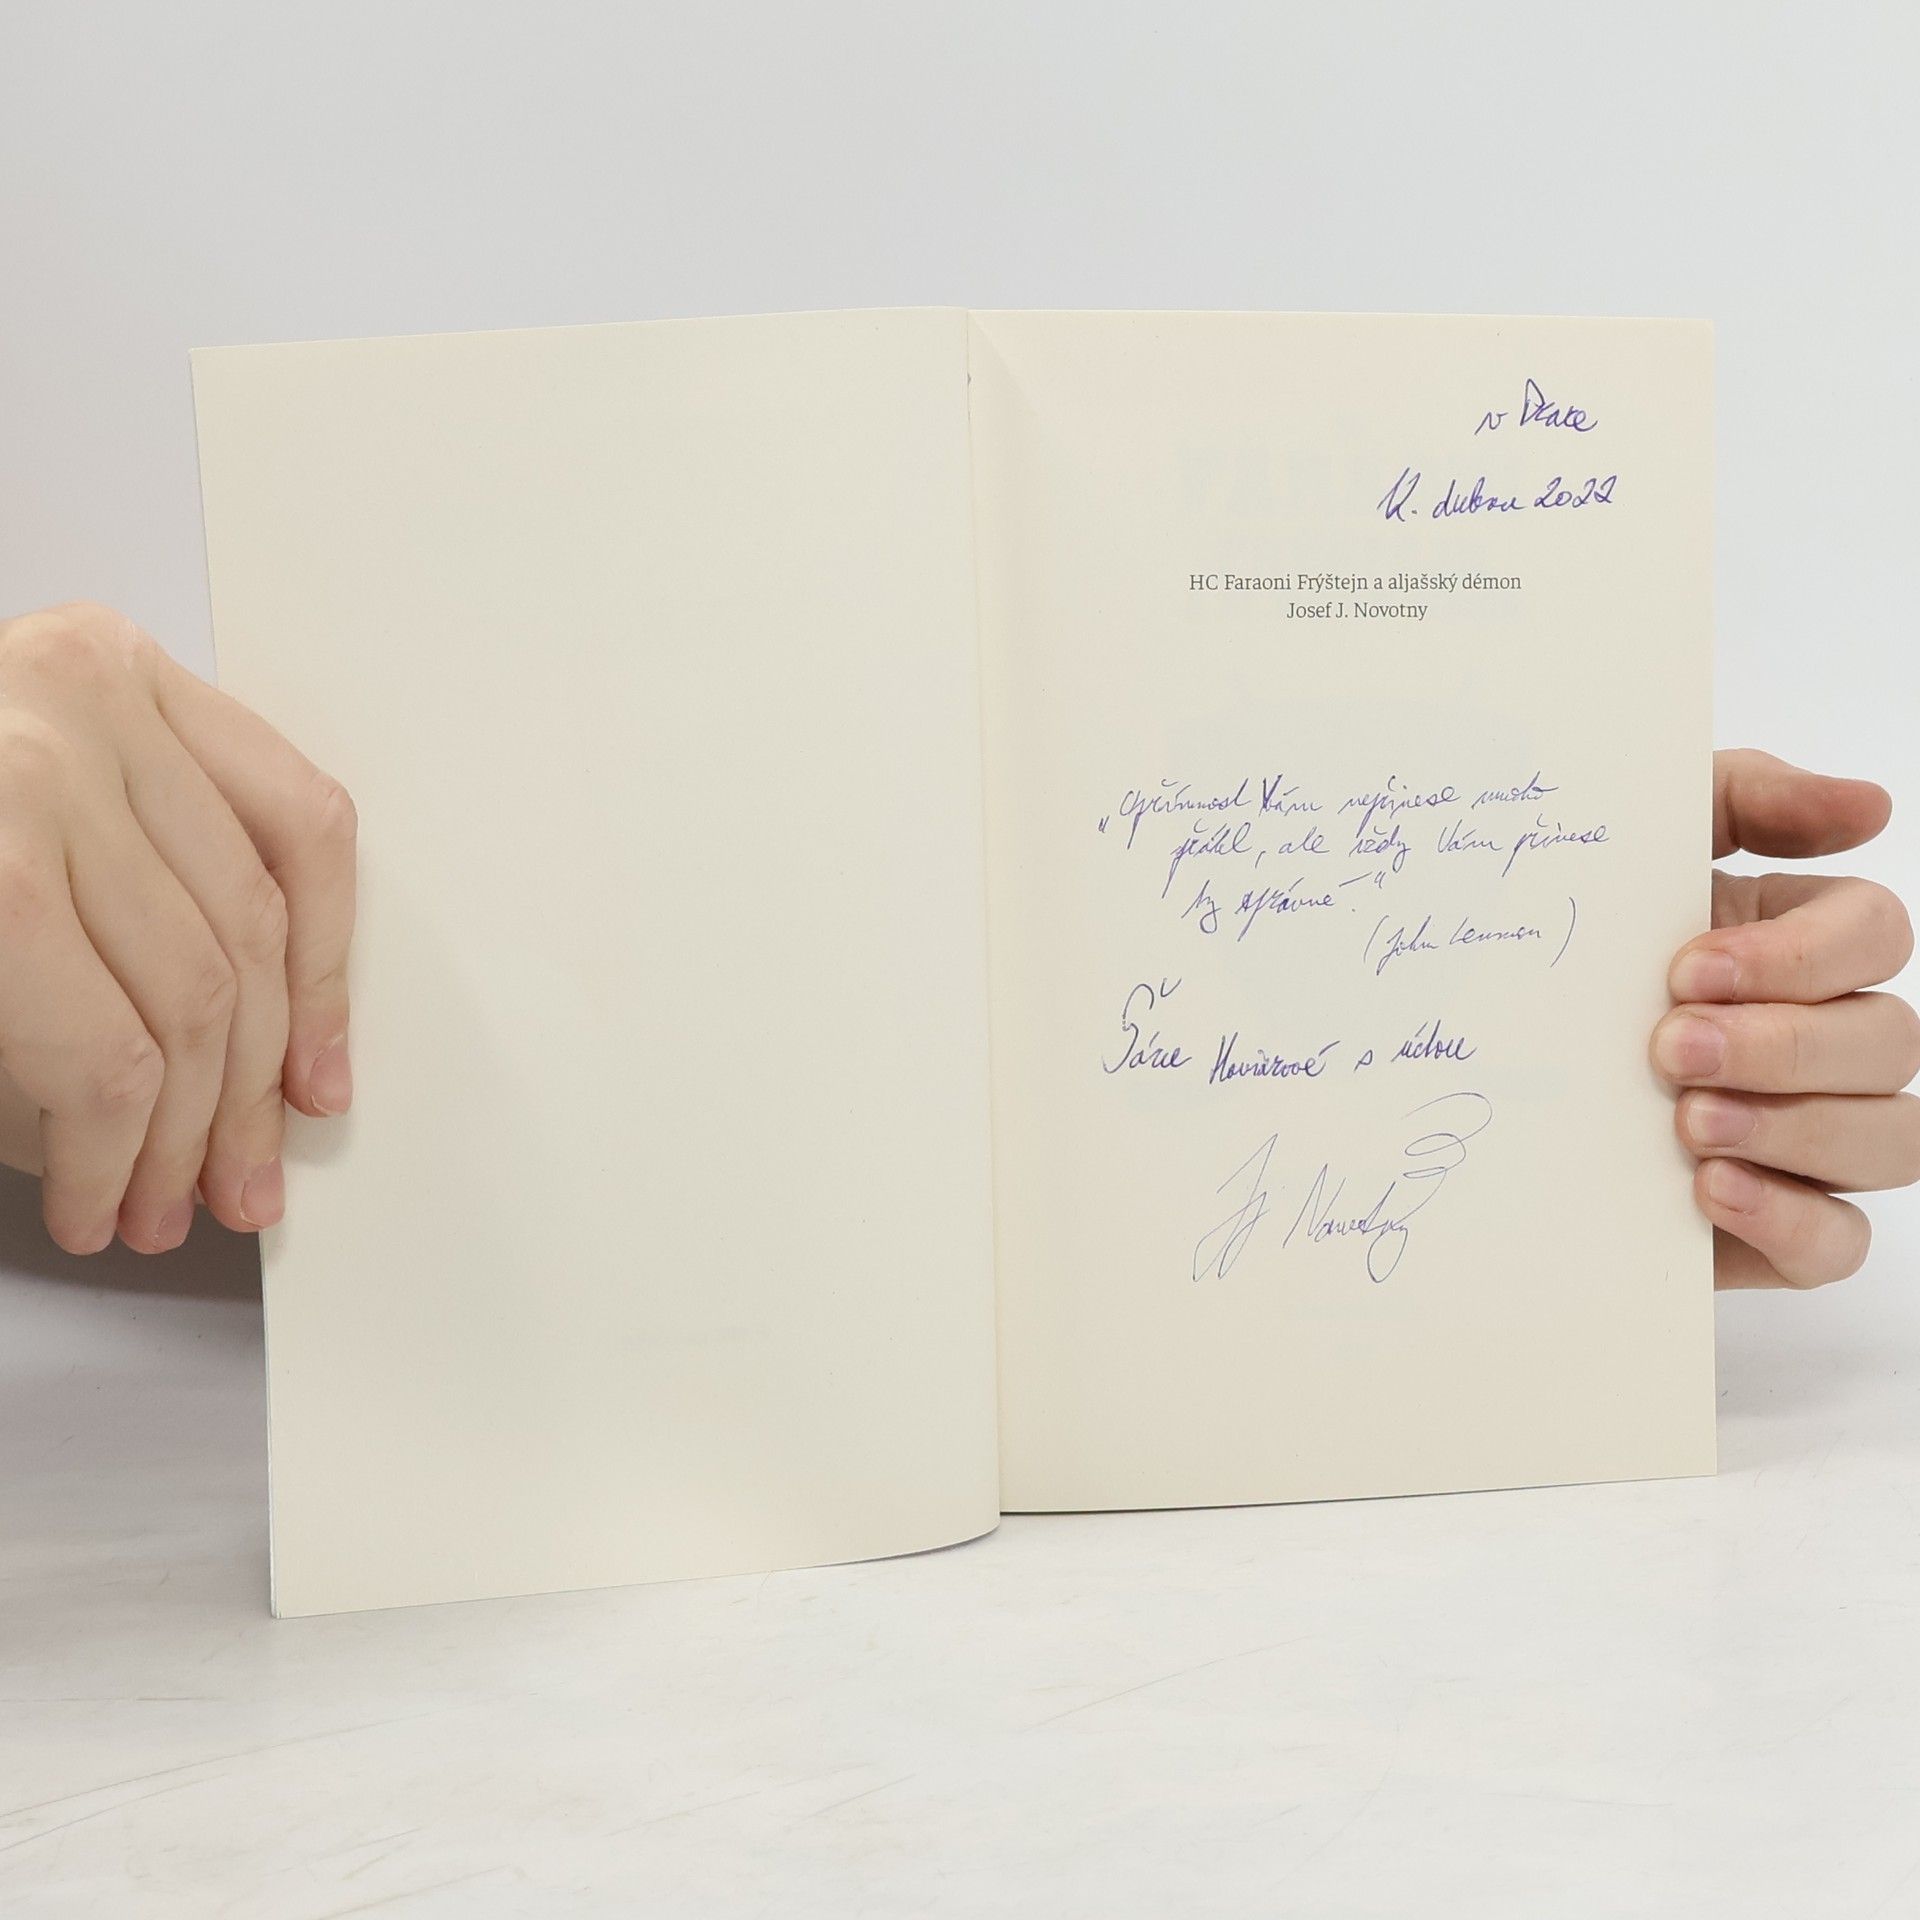 v Praze
12. dubna 2022
HC Faraoni Frýštejn a aljašský démon
Josef J. Novotny
„Upřímnost Vám nepřinese mnoho
přátel, ale vždy Vám přinese
ty správné.“
(John Lennon)
Sáře s úctou
JJ Novotny